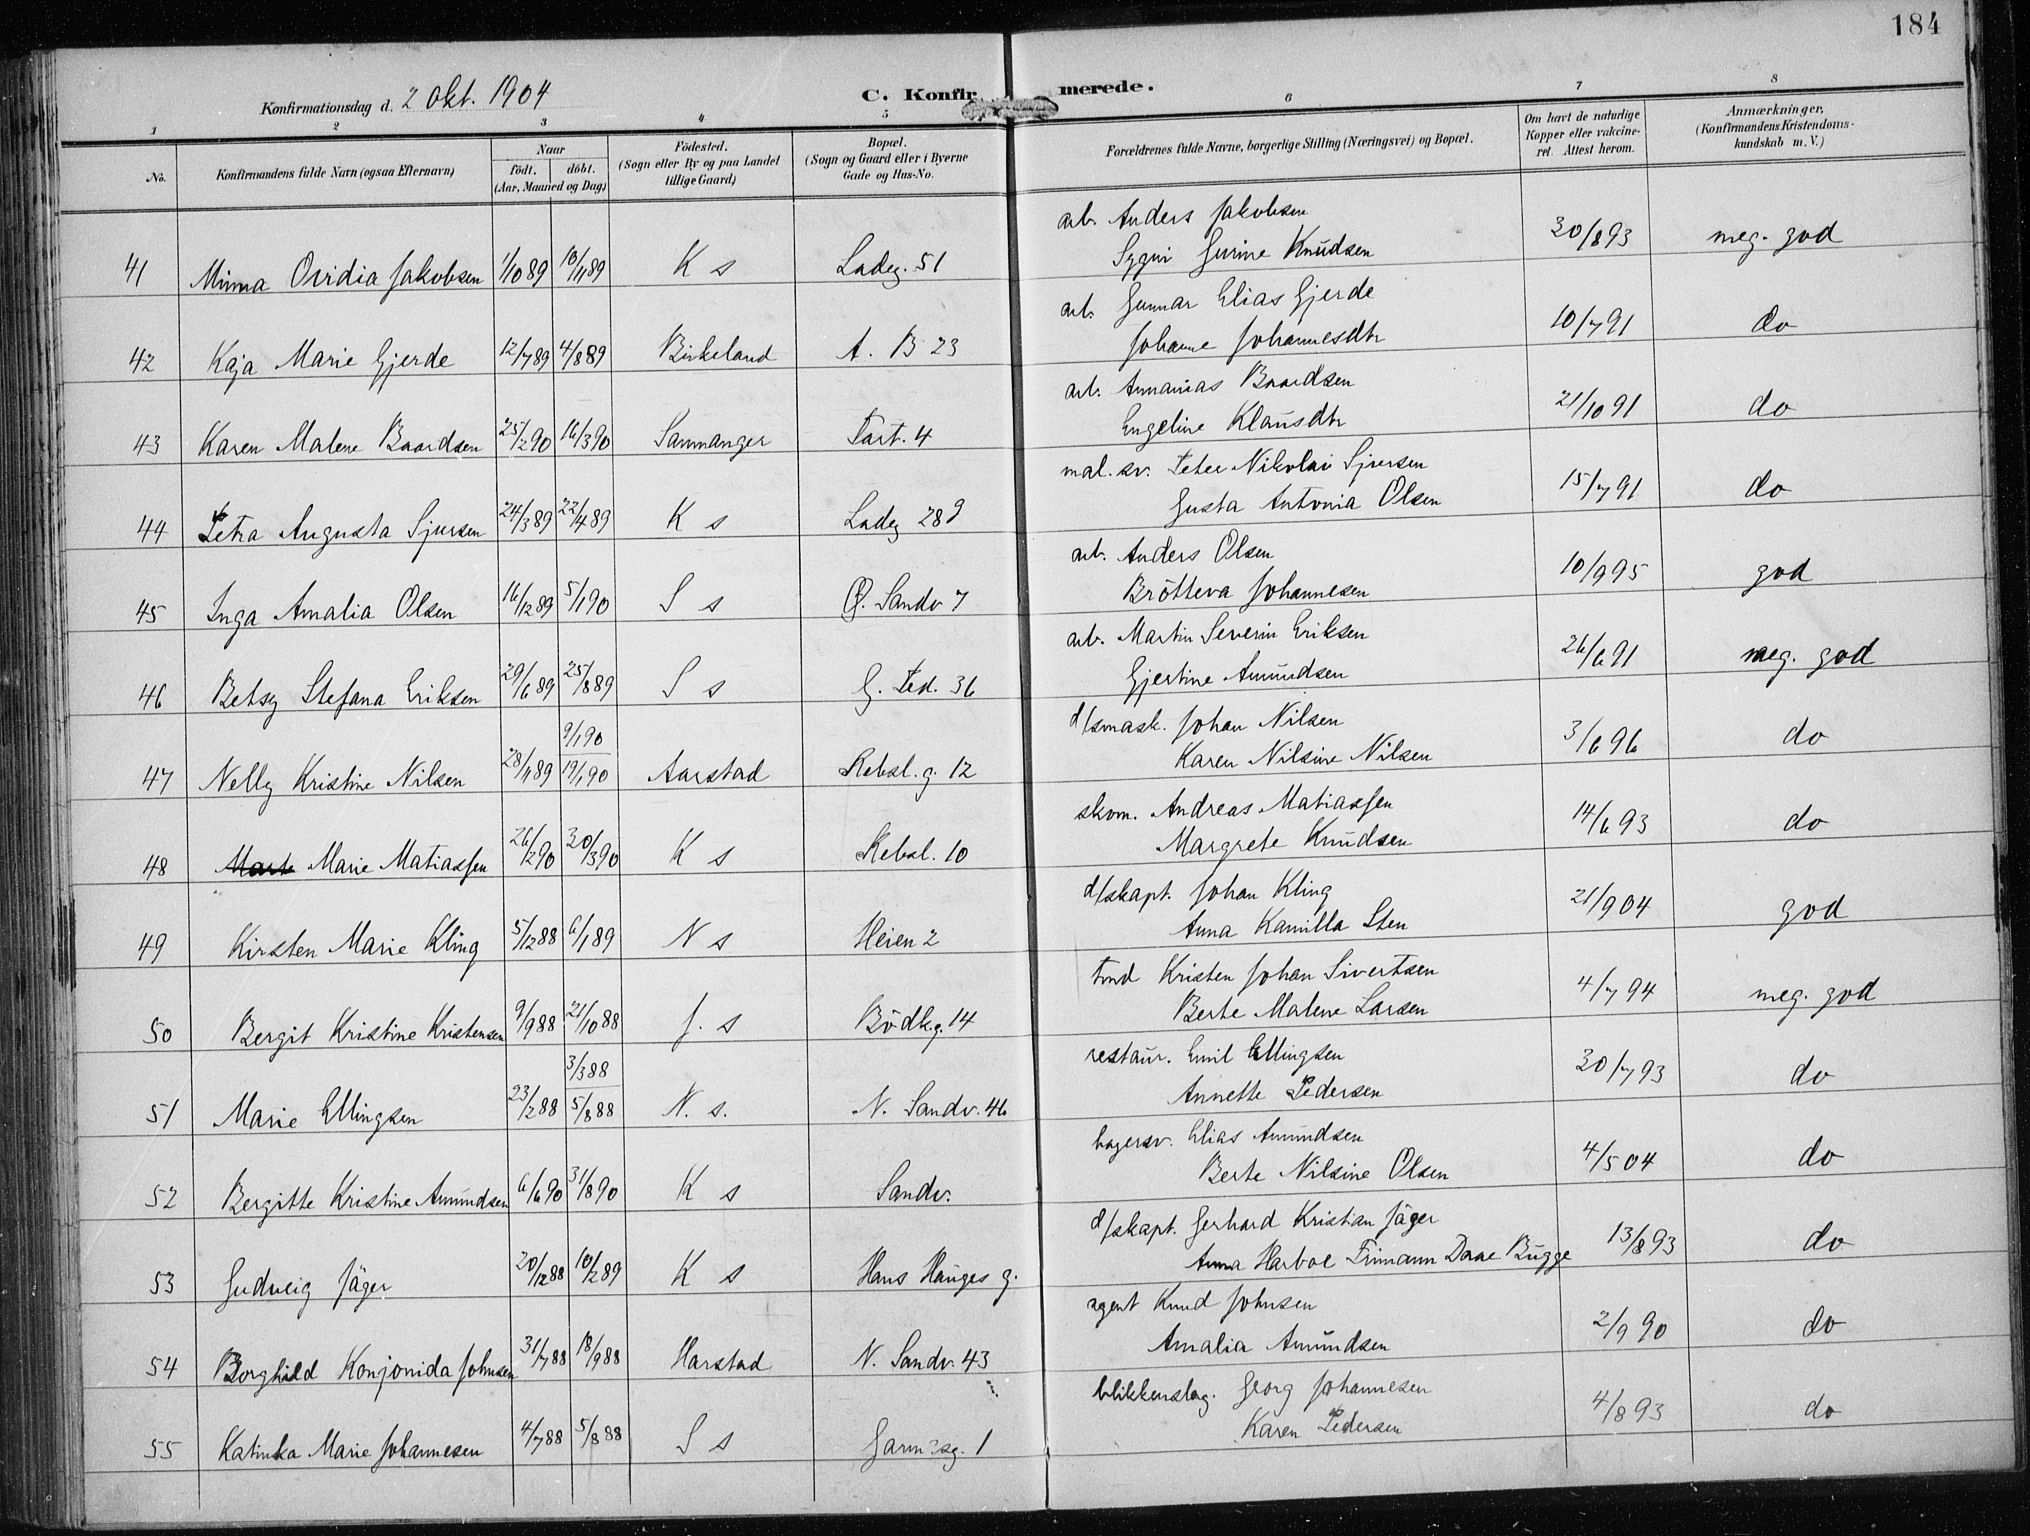 184
Konfirmationsdag d. 2 Okt. 1904 C. Konfir merede.
1 2 3 4 5 6 7 8
No. Konfirmandens fulde Navn (ogsaa Efternavn) Naar födt. döbt. (Aar, Maaned og Dag) Födested. (Sogn eller By og paa Landet tillige Gaard) Bopæl. (Sogn og Gaard eller i Byerne Gade og Hus-No. Forældrenes fulde Navne, borgerlige Stilling (Næringsvei) og Bopæl. Om havt de naturlige Kopper eller vakcineret. Attest herom. Anmærkninger, (Konfirmandens Kristendomskundskab m. V.)
arb. Anders Jakobsen
41 Minna Ovidia Jakobsen 1/10 89 10/11 89 K s Ladeg. 51 Gurine Knudsen 30/8 93 meg. god
arb. Gunnar Elias Gjerde
42 Kaja Marie Gjerde 12/7 89 4/8 89 Birkeland A. B 23 Johanne Johannesdtr 10/7 91 do
arb. Annanias Baardsen
43 Karen Malene Baardsen 25/2 90 16/3 90 Sammanger Fort. 4 Engeline Klausdtr 21/10 91 do
mal. sv. Peter Nikolai Sjursen
44 Petra Augusta Sjursen 24/3 89 22/4 89 K s Ladeg 289 Gusta Antonia Olsen 15/7 91 do
arb. Anders Olsen
45 Inga Amalia Olsen 16/12 89 5/1 90 S s Ø. Sandv 7 Brötteva Johannesen 10/9 95 god
arb. Martin Severin Eriksen
46 Betsy Stefana Eriksen 29/6 89 25/8 89 S s G. Ted. 36 Gjertine Amundsen 26/6 91 meg. god
d/smask. Johan Nilsen
47 Nelly Kristine Nilsen 28/11 89 9/1 90 19/1 90 Aarstad Rebsl. g. 12 Karen Nilsine Nilsen 3/6 96 do
skom. Andreas Matiassen
48 Marie Matiassen 26/2 90 30/3 90 K s Rebsl. 10 Margrete Knudsen 14/6 93 do
d/skapt. Johan Kling
49 Kirsten Marie Kling 5/12 88 6/1 89 N s Heien 2 Anna Kamilla Sten 21/9 04 god
tönd Kristen Johan Sivertsen
50 Bergit Kristine Kristensen 9/9 88 21/10 88 J. s Bödk.g. 14 Berte Malene Larsen 4/7 94 meg. god
restaur. Emil Ellingsen
51 Marie Ellingsen 23/2 88 3/3 88 5/8 88 N. s. N. Sandv. 46 Annette Pedersen 30/7 93 do
bagersv. Elias Amundsen
52 Bergitte Kristine Amundsen 6/6 90 31/8 90 K s Sandv. Berte Nilsine Olsen 4/5 04 do
d/skapt. Gerhard Kristian Jäger
53 Gudveig Jäger 20/12 88 10/2 89 K s Hans Hauges g. Anna Harboe Frimann Daae Bugge 13/8 93 do
agent Knud Johnsen
54 Borghild Konjonida Johnsen 31/7 88 18/9 88 Harstad N. Sandv. 43 Amalia Amundsen 2/9 90 do
blikkenslag. Georg Johannesen
55 Katinka Marie Johannesen 4/7 88 5/8 88 S s 1 Karen Pedersen 4/8 93 do